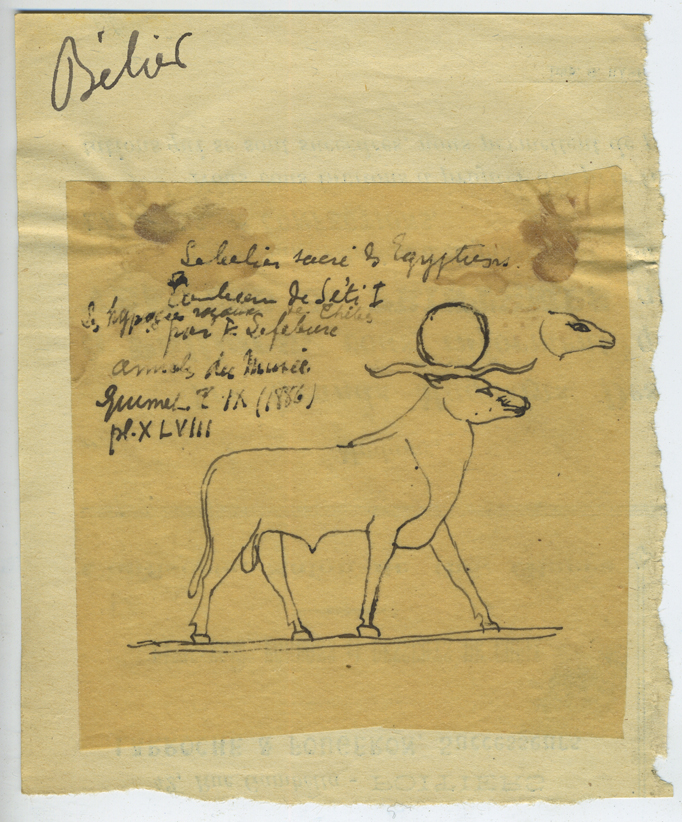 Bélier
Le bélier sacré des Egyptiens.
Tombeau de Séti I
Les hypogées royaux de Thèbes
par E. Lefebure
annales du Musée
Guimet T. IX (1886)
pl. XLVIII